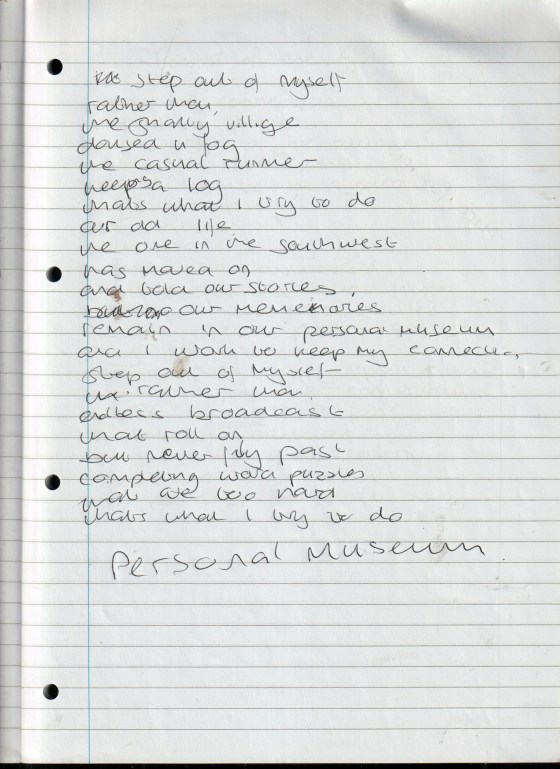 step out of myself
rather than,
the village
doused in fog
the casual runner
keeps a log
thats what I try to do
our old life
the one in the southwest
has moved on
and told our stories,
our memories
remain in our personal museum
and I work to keep my
step out of myself
rather than,
endless broadcast
that roll on
but never fly past
completing word puzzles
that are too hard
thats what I try to do
Personal Museum